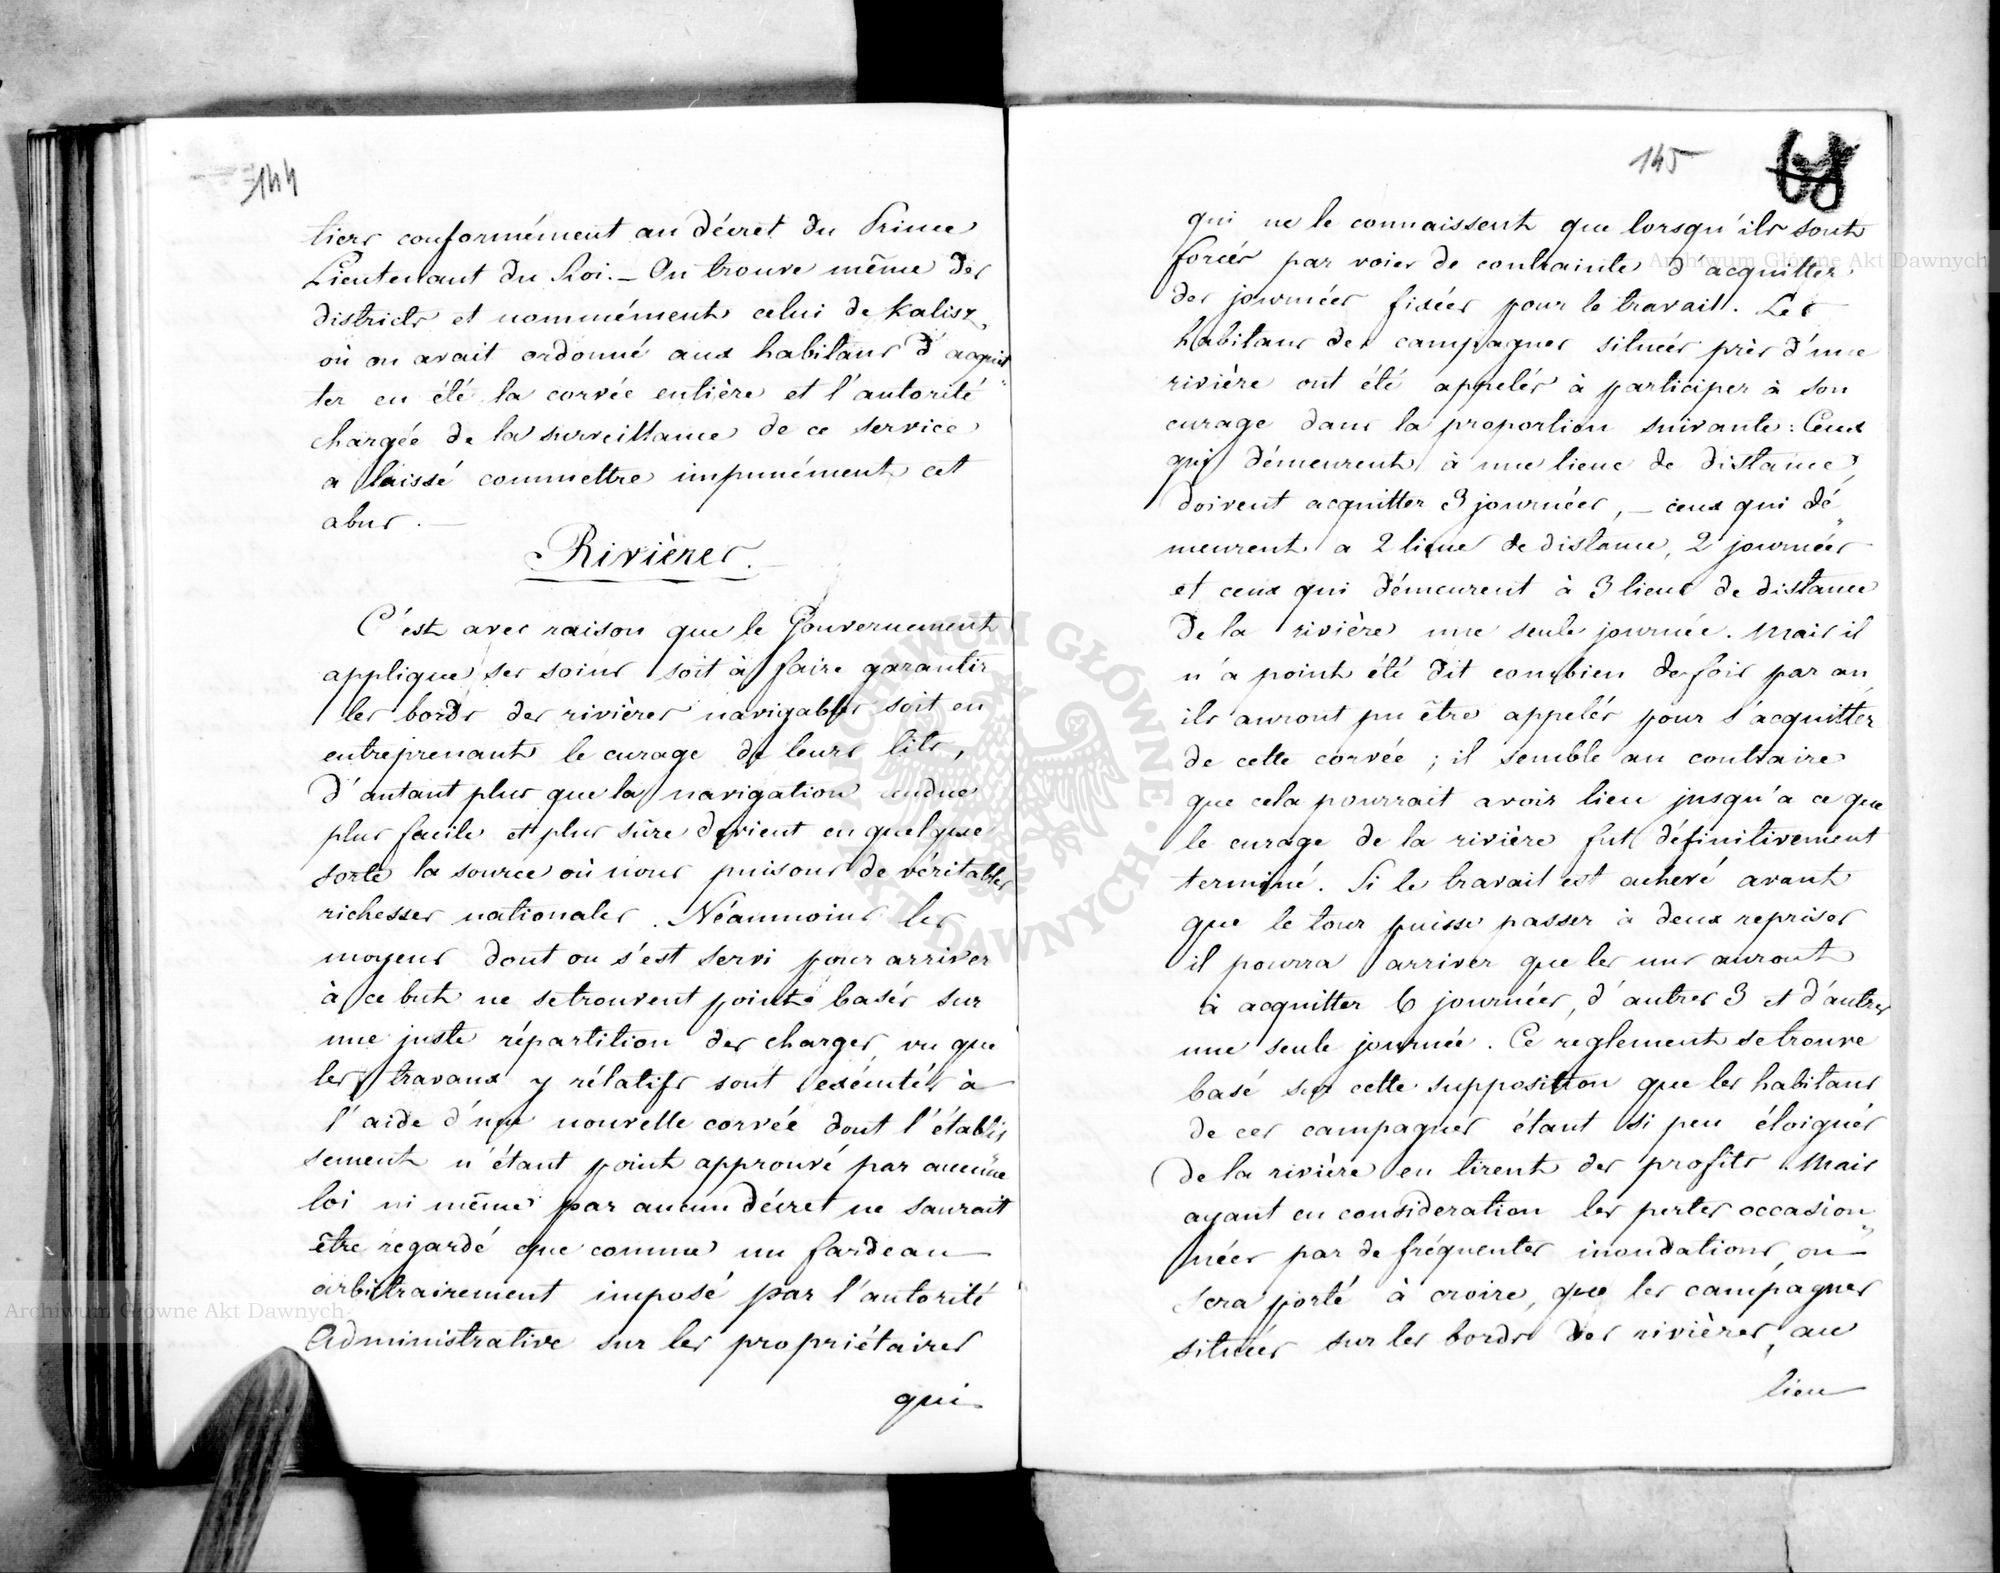 144
tiers conformément au décret du Prince
Lieutenant du Roi. — On trouve même des
districts et nommément celui de Kalisz,
où on avait ordonné aux habitans d'acquit
ter en été la corvée entière et l'autorité
chargée de la surveillance de ce service
a laissé commettre impunément cet
abus. —
Rivières. —
C'est avec raison que le Gouvernement
applique ses soins soit à faire garantir
les bords des rivières navigables soit en
entreprenant le curage de leurs lits,
d'autant plus que la navigation rendue
plus facile et plus sûre devient en quelque
sorte la source où nous puisons de véritables
richesses nationales. Néanmoins les
moyens dont on s'est servi pour arriver
à ce but ne se trouvent point basés sur
une juste répartition des charges, vu que
les travaux y rélatifs sont exécutés à
l'aide d'une nouvelle corvée dont l'établis
sement n'étant point approuvé par aucune
loi ni même par aucun décret ne saurait
être regardé que comme un fardeau
arbitrairement imposé par l'autorité
Administrative sur les propriétaires
qui
145
68
qui ne le connaissent que lorsqu'ils sont
forcés par voies de contrainte d'acquitter
des journées fixées pour le travail. Les
habitans des campagnes situées près d'une
rivière ont été appelés à participer à son
curage dans la proportion suivante: Ceux
qui démeurent à une lieue de distance,
doivent acquitter 3 journées, — ceux qui dé„
meurent a 2 lieues de distance, 2 journées
et ceux qui démeurent à 3 lieues de distance
de la rivière une seule journée. Mais il
n'a point été dit combien de fois par an
ils auront pu être appelés pour s'acquitter
de cette corvée; il semble au contraire
que cela pourrait avoir lieu jusqu'a ce que
le curage de la rivière fut définitivement
terminé. Si le travail est achevé avant
que le tour puisse passer à deux reprises
il pourra arriver que les uns auront
à acquitter 6 journées, d'autres 3 et d'autres
une seule journée. Ce reglement se trouve
basé sur cette supposition que les habitans
de ces campagnes étant si peu éloignés
de la rivière en tirent des profits. Mais
ayant en consideration les pertes occasion„
nées par de fréquentes inondations, on
sera porté à croire, que les campagnes
situées sur les bords des rivières, au
lieu
Archiwum Główne Akt Dawnych
Archiwum Główne Akt Dawnych
ARCHIWUM GŁÓWNE AKT DAWNYCH